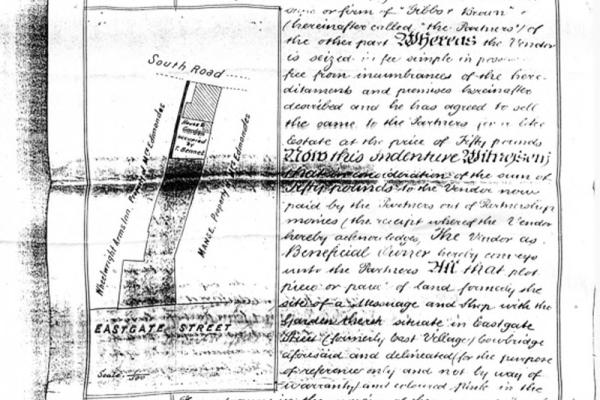 South Road
House &
Garden
occupied
by
T. Bennet
Wheelwright Arms Inn. Property of Mr T. Edmondes
MANSE. Property of Mr T. Edmondes
EASTGATE STREET
Scale
or firm of "Gibbs & Brown"
(hereinafter called "the Partners") of
the other part Whereas the Vendor
is seized in fee simple in
free from incumbrances of the here-
ditaments and premises hereinafter
described and he has agreed to sell
the same to the Partners for a like
Estate at the price of Fifty pounds
Now this Indenture Witnesseth
that in consideration of the sum of
Fifty pounds to the Vendor now
paid by the Partners out of Partnership
monies (the receipt whereof the Vendor
hereby acknowledges) The Vendor as
Beneficial Owner hereby conveys
unto the Partners All that plot
piece or parcel of land formerly the
site of a Messuage and Shop with the
Garden thereto situate in Eastgate
Street (formerly East Village) Cowbridge
aforesaid and delineated (for the purpose
of reference only and not by way of
warranty) and coloured pink in the